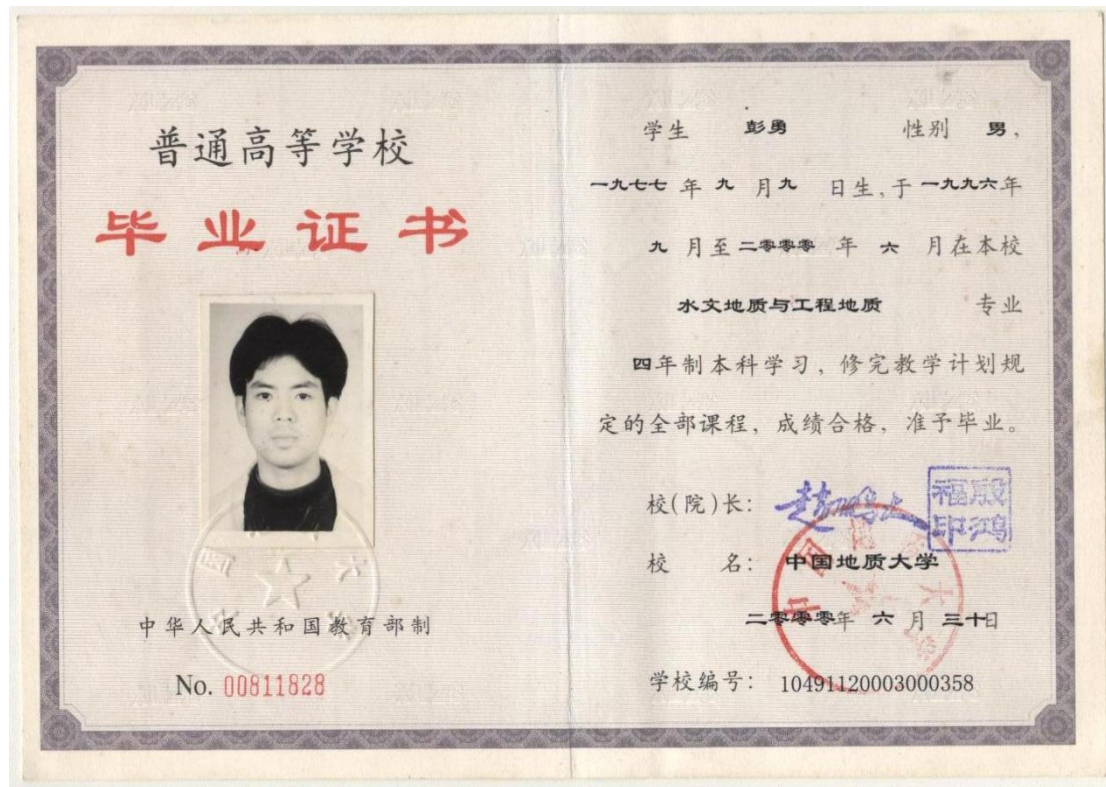 普通高等学校
毕业证书
中华人民共和国教育部制
No. 00811828
学生 彭勇 性别 男,
一九七七 年 九 月 九 日生,于 一九九六年
九 月至 二零零零 年 六 月在本校
水文地质与工程地质 专业
四年制本科学习,修完教学计划规
定的全部课程,成绩合格,准予毕业。
校(院)长:
殷鸿福印
校 名: 中国地质大学
二零零零年 六 月 三十日
学校编号: 10491120003000358